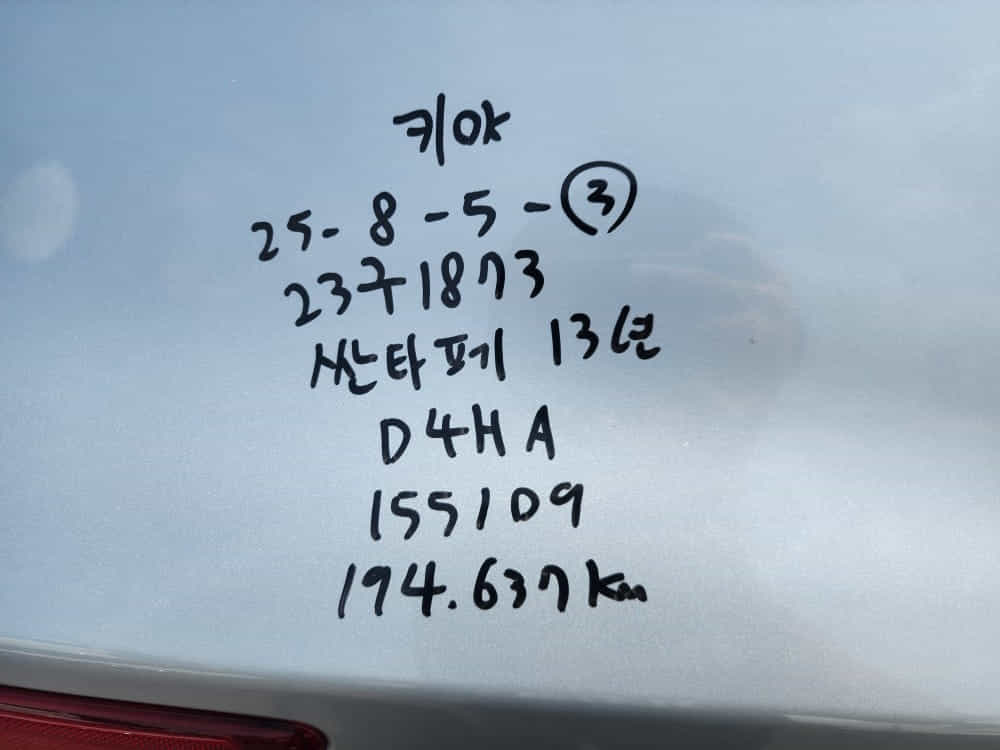 키야
25-8-5-③
23구1873
싼타페 13년
D4HA
155109
194.637km